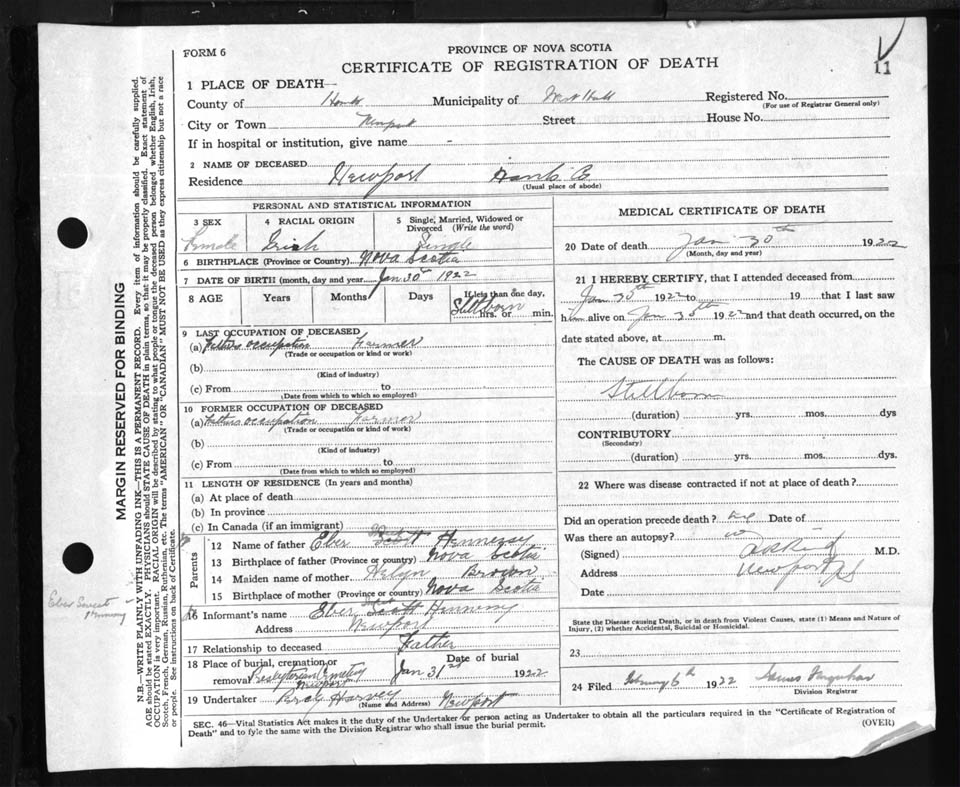 FORM 6
PROVINCE OF NOVA SCOTIA
CERTIFICATE OF REGISTRATION OF DEATH
11
1 PLACE OF DEATH
County of Hants Municipality of West Hants Registered No.
(For use of Registrar General only)
City or Town Newport Street House No.
If in hospital or institution, give name -
2 NAME OF DECEASED
Residence Newport Hants Co.
(Usual place of abode)
PERSONAL AND STATISTICAL INFORMATION
3 SEX 4 RACIAL ORIGIN 5 Single, Married, Widowed or Divorced (Write the word)
Female Irish Single
6 BIRTHPLACE (Province or Country) Nova Scotia
7 DATE OF BIRTH (month, day and year) Jan 30 1922
8 AGE Years Months Days If less than one day, hrs. or min.
Stillborn
9 LAST OCCUPATION OF DECEASED
(a) Fathers occupation Farmer
(Trade or occupation or kind or work)
(b)
(Kind of industry)
(c) From to
(Date from which to which so employed)
10 FORMER OCCUPATION OF DECEASED
(a) Fathers occupation Farmer
(Trade or occupation or kind or work)
(b)
(Kind of industry)
(c) From to
(Date from which to which so employed)
11 LENGTH OF RESIDENCE (In years and months)
(a) At place of death
(b) In province
(c) In Canada (if an immigrant)
Parents
12 Name of father Eber Scott Hennessy
13 Birthplace of father (Province or country) Nova Scotia
14 Maiden name of mother Brown
15 Birthplace of mother (Province or country) Nova Scotia
16 Informant's name Eber Scott Hennessy
Address Newport
17 Relationship to deceased Father
18 Place of burial, cremation or removal Presbyterian Cemetery Newport Date of burial Jan 31st 1922
19 Undertaker Percy Harvey Newport
(Name and Address)
MEDICAL CERTIFICATE OF DEATH
20 Date of death Jan 30th 1922
(Month, day and year)
21 I HEREBY CERTIFY, that I attended deceased from
Jan 30th 1922 to 19 that I last saw
h alive on Jan 30th 1922 and that death occurred, on the
date stated above, at m.
The CAUSE OF DEATH was as follows:
Stillborn
(duration) yrs. mos. dys
CONTRIBUTORY
(Secondary)
(duration) yrs. mos. dys.
22 Where was disease contracted if not at place of death?
Did an operation precede death? Date of
Was there an autopsy?
(Signed) M.D.
Address Newport NS
Date
State the Disease causing Death, or in death from Violent Causes, state (1) Means and Nature of Injury, (2) whether Accidental, Suicidal or Homicidal.
23
24 Filed February 6th 1922 James Farquhar
Division Registrar
SEC. 46—Vital Statistics Act makes it the duty of the Undertaker or person acting as Undertaker to obtain all the particulars required in the "Certificate of Registration of
Death" and to fyle the same with the Division Registrar who shall issue the burial permit.
(OVER)
MARGIN RESERVED FOR BINDING
N.B.—WRITE PLAINLY WITH UNFADING INK—THIS IS A PERMANENT RECORD. Every item of information should be carefully supplied.
AGE should be stated EXACTLY. PHYSICIANS should STATE CAUSE OF DEATH in plain terms, so that it may be properly classified. Exact statement of
OCCUPATION is very important. RACIAL ORIGIN will be described by stating to what people or tongue the deceased person belonged whether English, Irish,
Scotch, French, German, Russian, Ruthenian, etc. The terms "AMERICAN" OR "CANADIAN" MUST NOT BE USED as they express citizenship but not a race
or people. See instructions on back of Certificate.
Eber
Hennessy